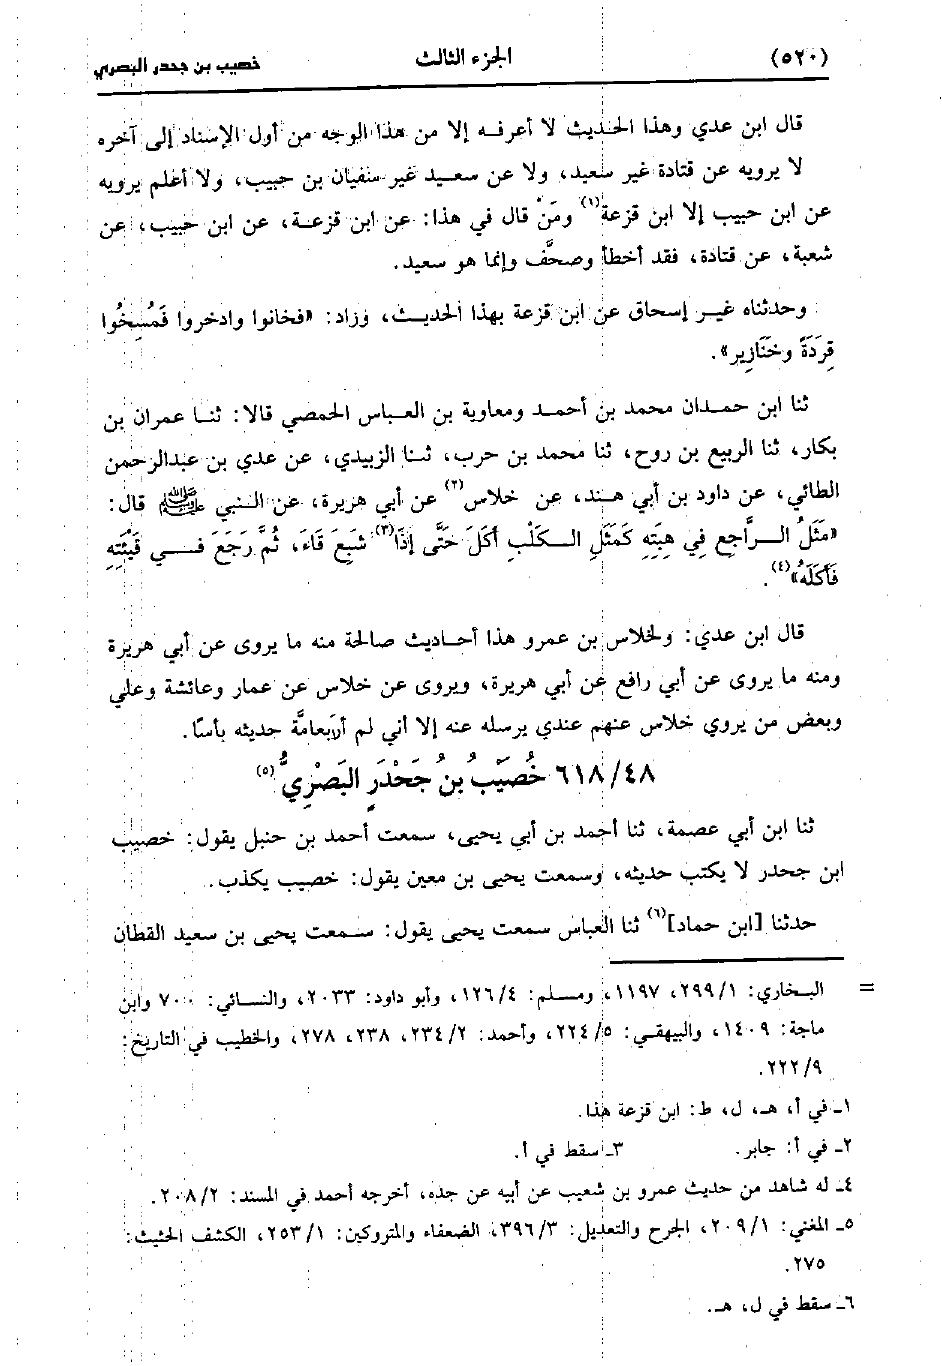 (٥٢٠) الجزء الثالث خصيب بن جحدر البصري
قال ابن عدي وهذا الحديث لا أعرفه إلا من هذا الوجه من أول الإسناد إلى آخره
لا يرويه عن قتادة غير سعيد، ولا عن سعيد غير سفيان بن حبيب، ولا أعلم يرويه
عن ابن حبيب إلا ابن قزعة(١) ومَنْ قال في هذا: عن ابن قزعة، عن ابن حبيب، عن
شعبة، عن قتادة، فقد أخطأ وصحَّف وإنما هو سعيد.
وحدثناه غير إسحاق عن ابن قزعة بهذا الحديث، وزاد: «فخانوا وادخروا فَمُسِخُوا
قِرَدَةً وخَنَازِير».
ثنا ابن حمدان محمد بن أحمد ومعاوية بن العباس الحمصي قالا: ثنا عمران بن
بكار، ثنا الربيع بن روح، ثنا محمد بن حرب، ثنا الزبيدي، عن عدي بن عبدالرحمن
الطائي، عن داود بن أبي هند، عن خلاس(٢) عن أبي هريرة، عن النبي ﷺ قال:
«مَثَلُ الرَّاجِعِ فِي هِبَتِهِ كَمَثَلِ الكَلْبِ أَكَلَ حَتَّى إِذَا(٣) شَبِعَ قَاءَ، ثُمَّ رَجَعَ فِي قَيْئَتِهِ
فَأَكَلَهُ»(٤).
قال ابن عدي: ولخلاس بن عمرو هذا أحاديث صالحة منه ما يروى عن أبي هريرة
ومنه ما يروى عن أبي رافع عن أبي هريرة، ويروى عن خلاس عن عمار وعائشة وعلي
وبعض من يروي خلاس عنهم عندي يرسله عنه إلا أني لم أرَ بعامَّة حديثه بأسًا.
٦١٨/٤٨ خُصَيْبُ بنُ جَحْدَرٍ البَصْرِيُّ(٥)
ثنا ابن أبي عصمة، ثنا أحمد بن أبي يحيى، سمعت أحمد بن حنبل يقول: خصيب
ابن جحدر لا يكتب حديثه، وسمعت يحيى بن معين يقول: خصيب يكذب.
حدثنا [ابن حماد](٦) ثنا العباس سمعت يحيى يقول: سمعت يحيى بن سعيد القطان
= البخاري: ٢٩٩/١، ١١٩٧، ومسلم: ١٢٦/٤، وأبو داود: ٢٠٣٣، والنسائي: ٧٠٠ وابن
ماجة: ١٤٠٩، والبيهقي: ٢٢٤/٥، وأحمد: ٢٣٤/٢، ٢٣٨، ٢٧٨، والخطيب في التاريخ:
٢٢٢/٩.
١ـ في أ، هـ، ل، ط: ابن قزعة هذا.
٢ـ في أ: جابر. ٣ـ سقط في أ.
٤ـ له شاهد من حديث عمرو بن شعيب عن أبيه عن جده، أخرجه أحمد في المسند: ٢٠٨/٢.
٥ـ المغني: ٢٠٩/١، الجرح والتعديل: ٣٩٦/٣، الضعفاء والمتروكين: ٢٥٣/١، الكشف الحثيث:
٢٧٥.
٦ـ سقط في ل، هـ.